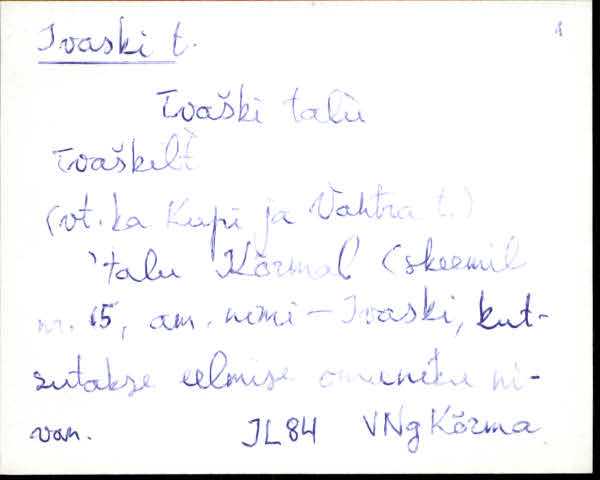 Ivaski t.
1
Ivaški talù
Ivaškilt̀
(vt. ka Kupi ja Vahtra t.)
'talu Kõrmal (skeemil
nr. 15, am. nimi – Ivaski, kut-
sutakse eelmise omaniku ni-
van.
JL84 VNg Kõrma